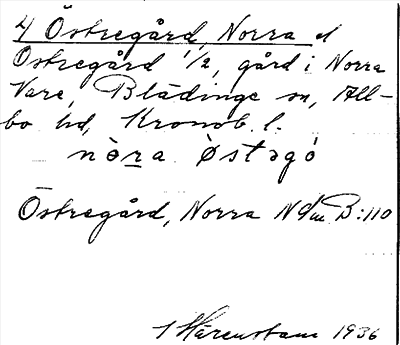 4) Östregård, Norra el
Östregård 1/2, gård i Norra
Vare, Blädinge sn, All-
bo hd, Kronob. l.
nòra òstəgó
Östregård, Norra Ndm B:110
1936